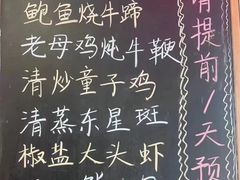 鲍鱼烧牛蹄
老母鸡炖牛鞭
清炒童子鸡
清蒸东星斑
椒盐大头虾
请提前1天预